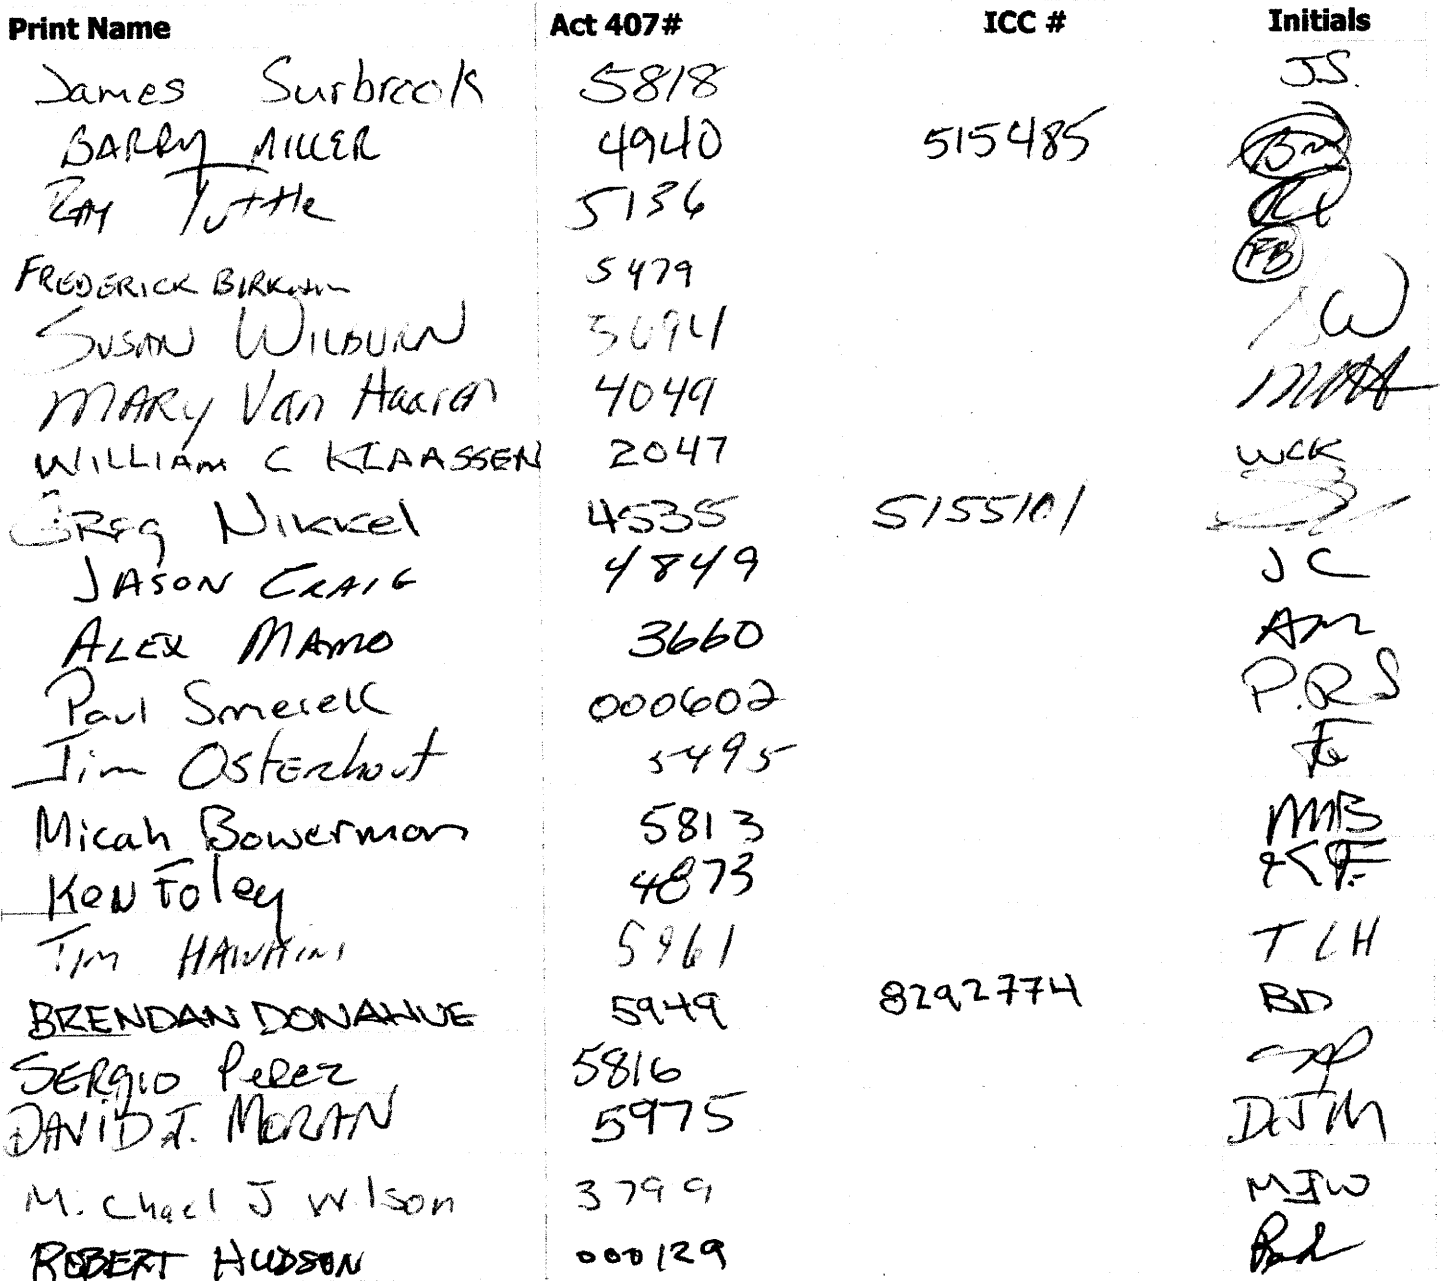 Print Name Act 407# ICC # Initials
James Surbrook 5818 J.S.
BARRY MILLER 4940 515485 Bm
RAY Tuttle 5136
FREDERICK BIRKHAM 5479 FB
SUSAN WILBURN 3694 SW
MARY Van Haaren 4049
WILLIAM C KLAASSEN 2047 WCK
Greg Nikkel 4535 5155101
JASON CRAIG 4849 JC
ALEX MAMO 3660 AM
Paul Smerek 000602 P.R.S
Jim Osterhout 5495
Micah Bowerman 5813 MB
Ken Foley 4873 KF.
Tim HAWKINS 5961 TLH
BRENDAN DONAHUE 5949 8292774 BD
SERGIO PEREZ 5816 SP
DAVID J. MORAN 5975 DJM
Michael J Wilson 3799 MJW
ROBERT HUDSON 000129